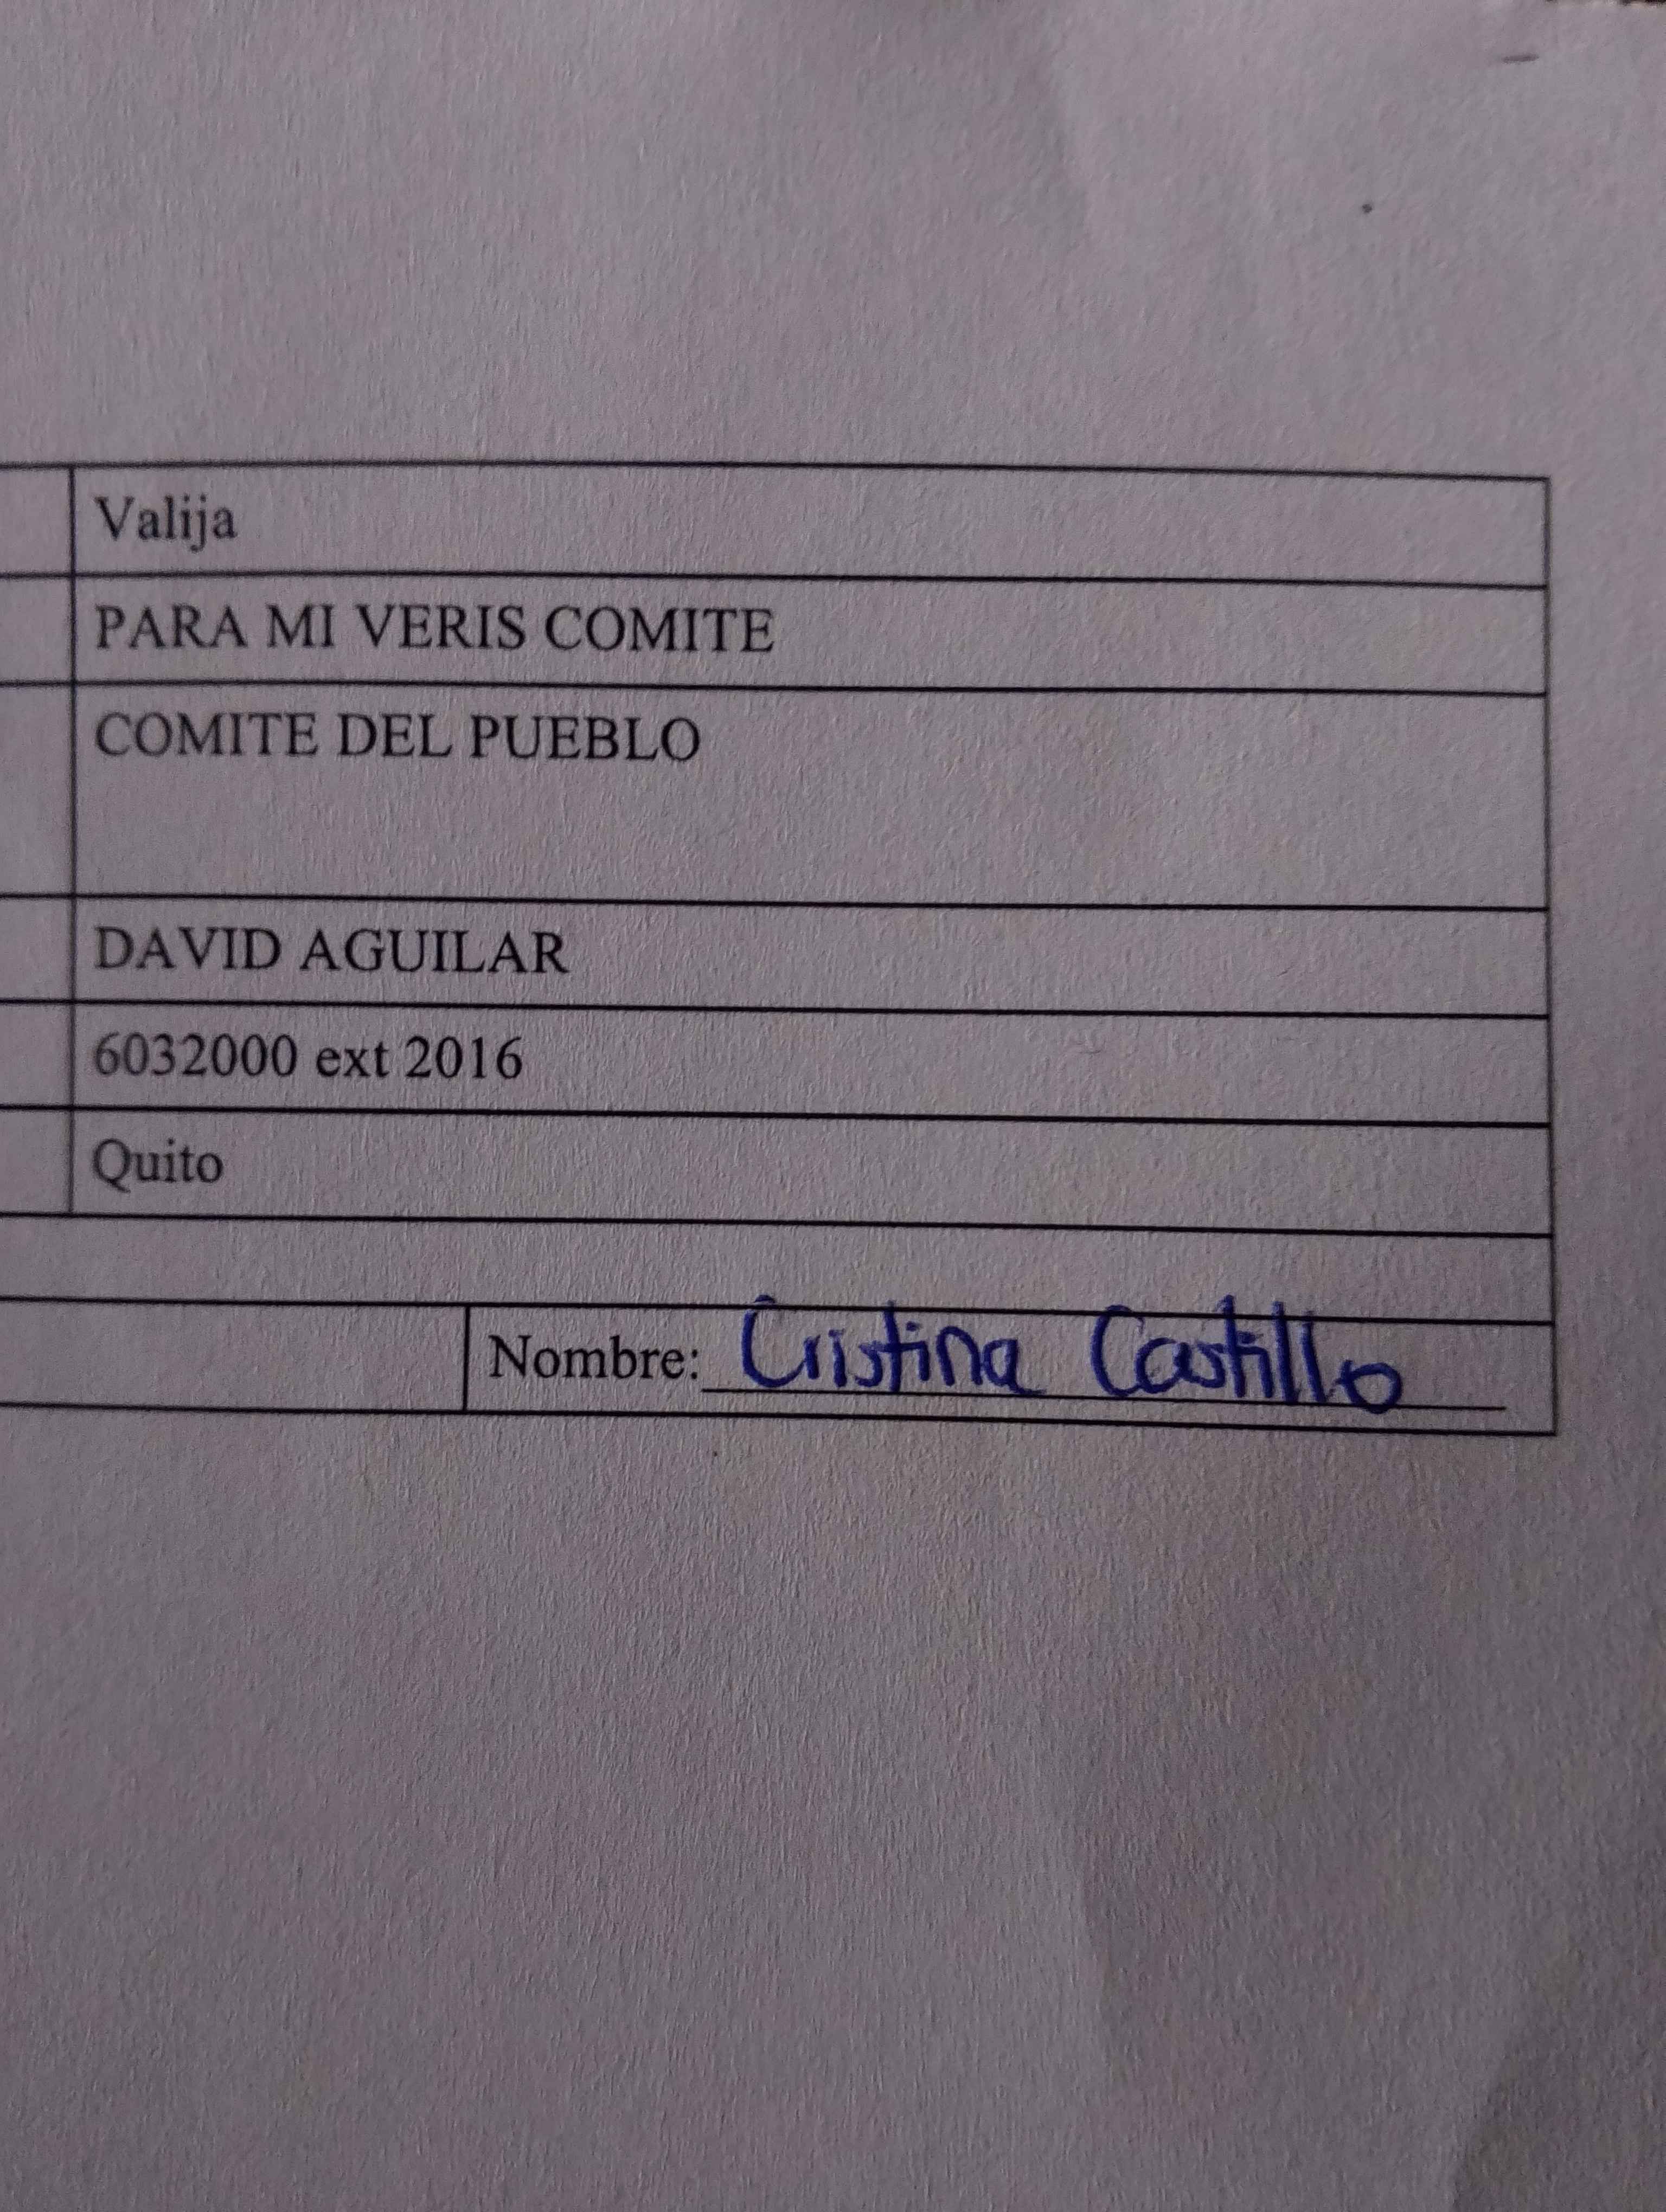 Valija
PARA MI VERIS COMITE
COMITE DEL PUEBLO
DAVID AGUILAR
6032000 ext 2016
Quito
Nombre: Cristina Castillo